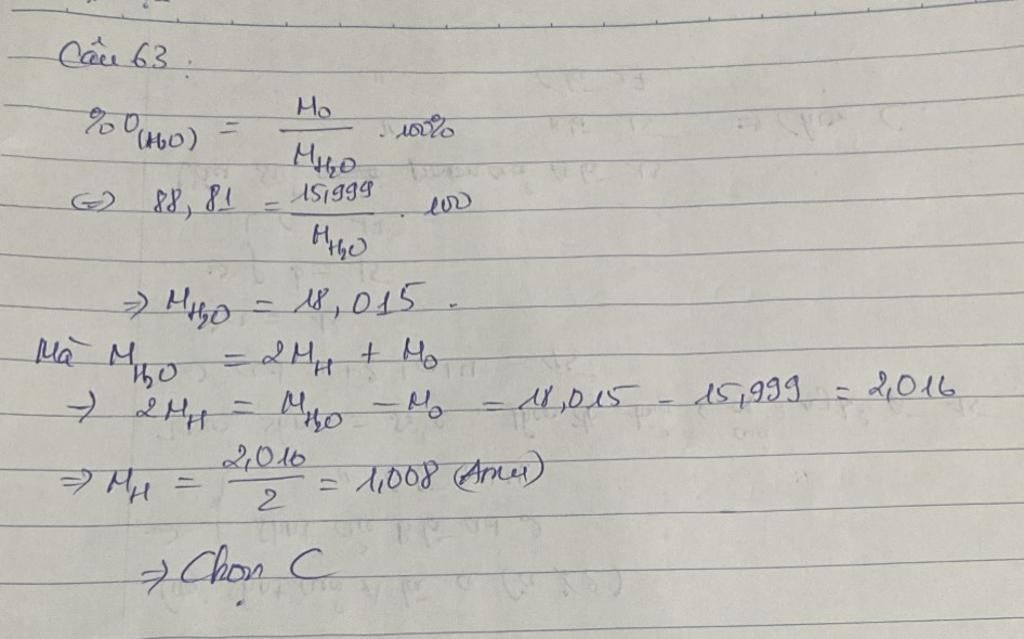 Câu 63:
%O(H₂O) = M_O / M_H₂O . 100%
<=> 88,81 = 15,999 / M_H₂O . 100
=> M_H₂O = 18,015 .
Mà M_H₂O = 2M_H + M_O
=> 2M_H = M_H₂O - M_O = 18,015 - 15,999 = 2,016
=> M_H = 2,016 / 2 = 1,008 (Amu)
=> Chọn C